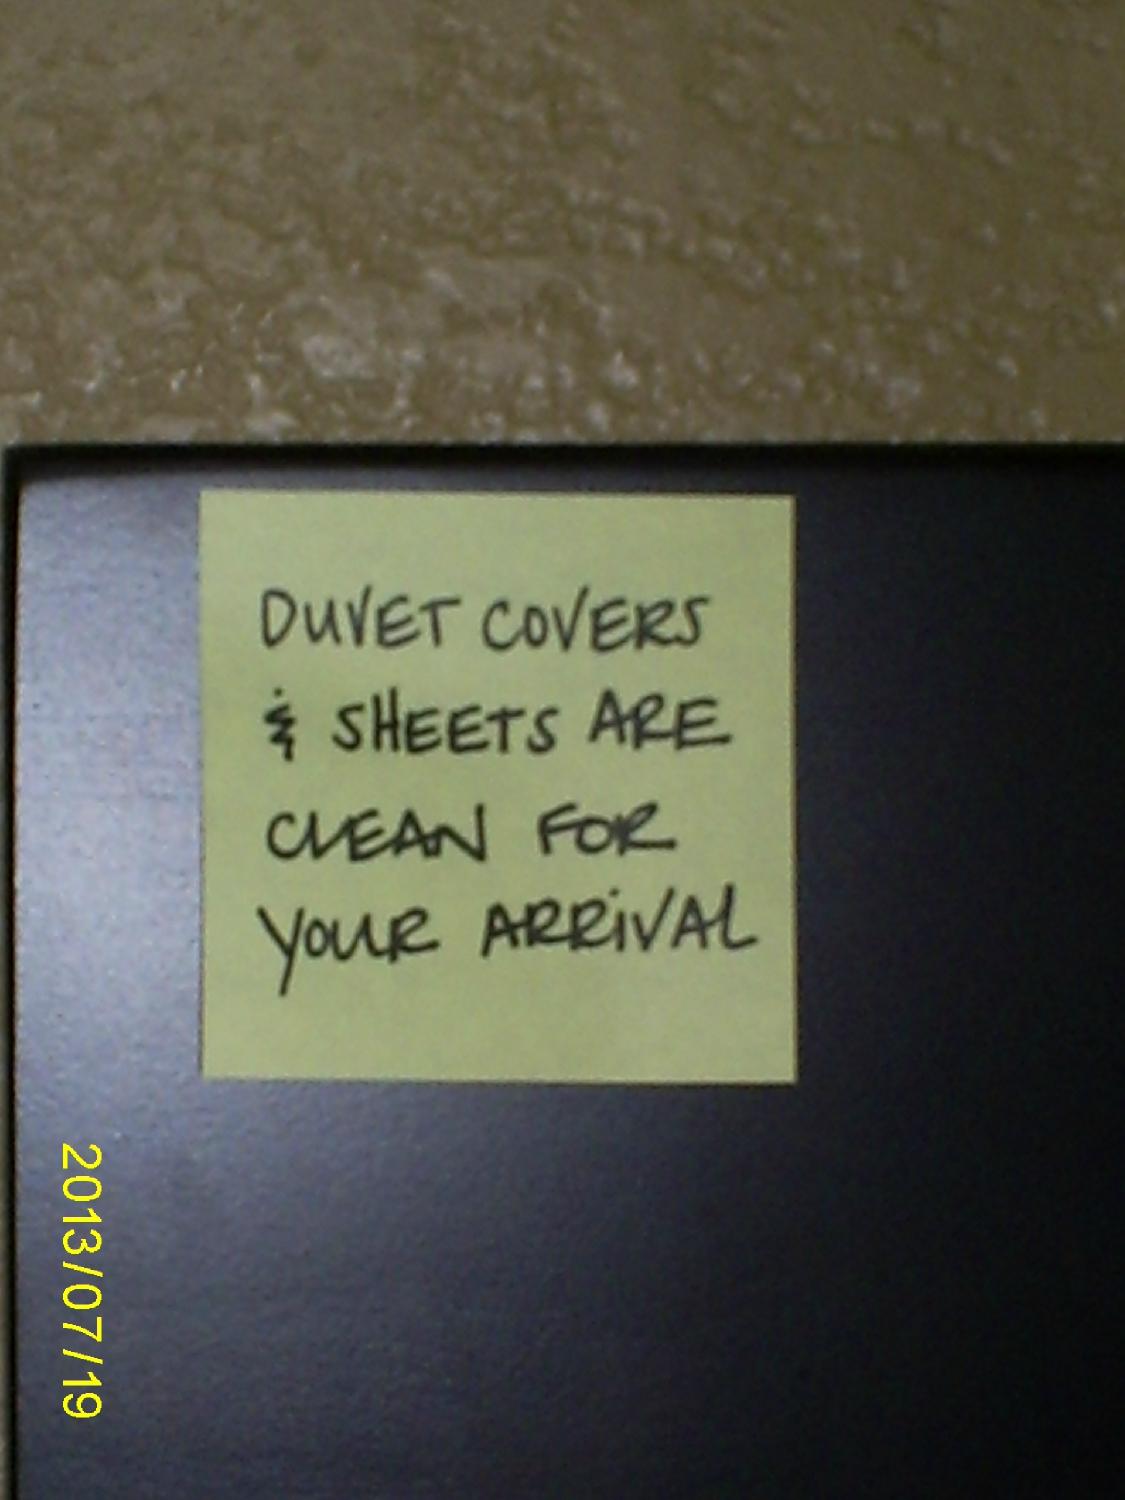 DUVET COVERS
& SHEETS ARE
CLEAN FOR
YOUR ARRiVAL
2013/07/19